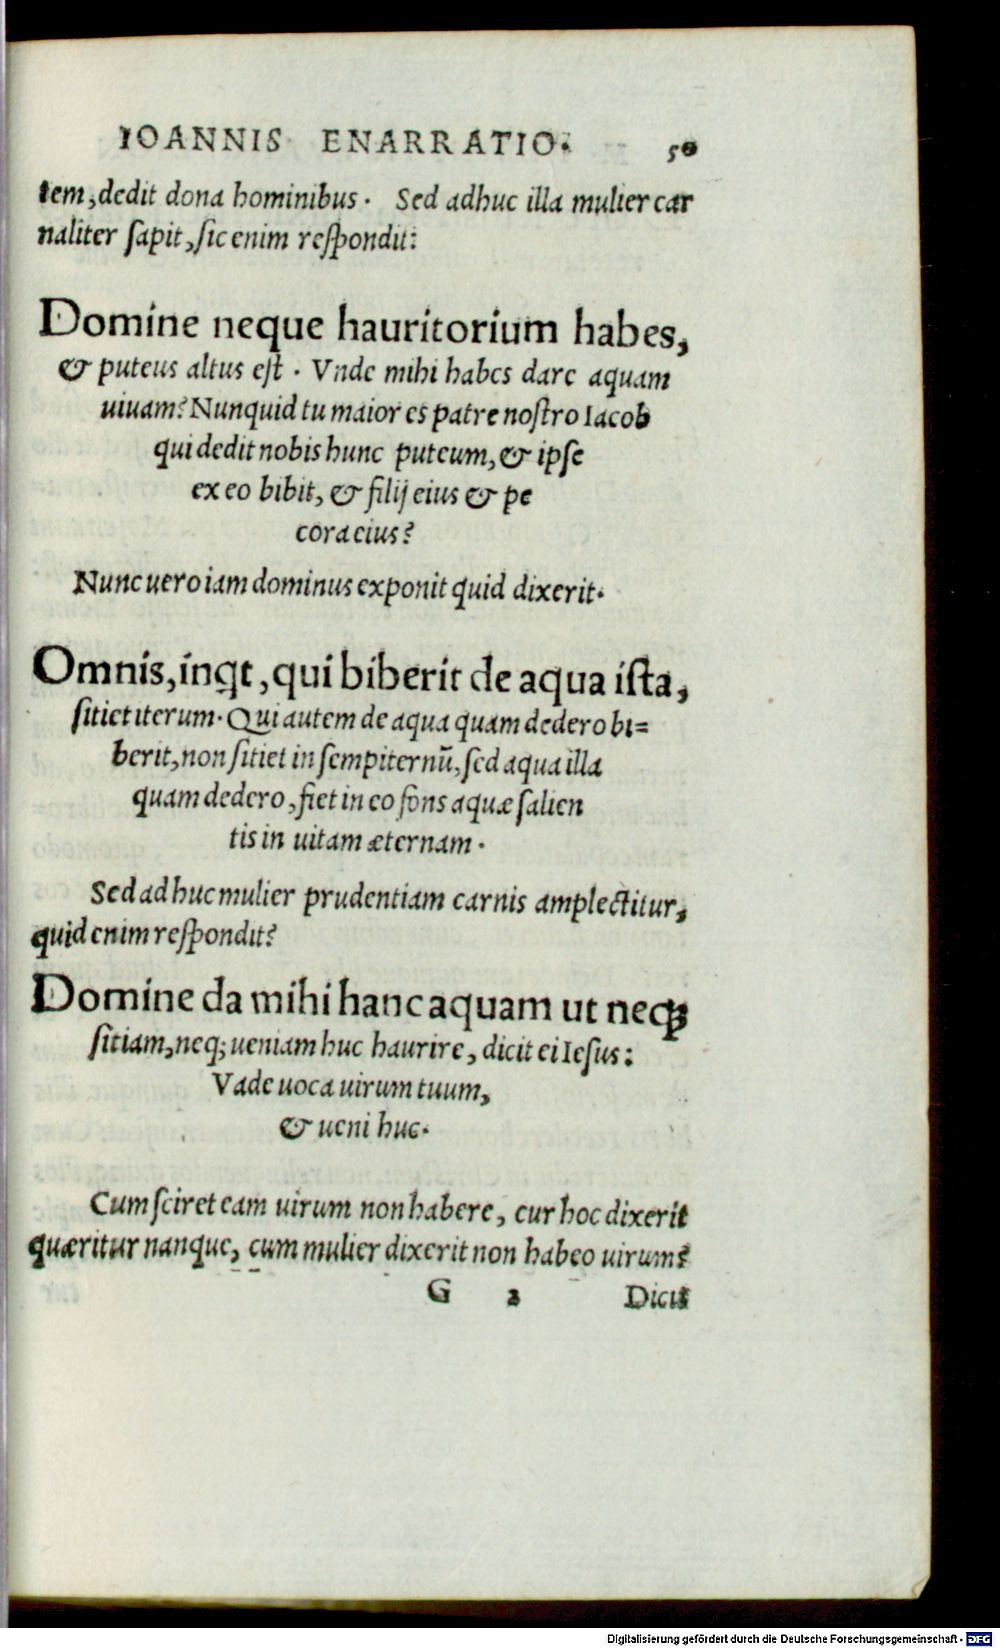 IOANNIS ENARRATIO. 50
tem, dedit dona hominibus. Sed adhuc illa mulier car
naliter sapit, sic enim respondit:
Domine neque hauritorium habes,
& puteus altus est. Vnde mihi habes dare aquam
uiuam? Nunquid tu maior es patre nostro Iacob
qui dedit nobis hunc puteum, & ipse
ex eo bibit, & filij eius & pe
cora eius?
Nunc uero iam dominus exponit quid dixerit.
Omnis, inqt, qui biberit de aqua ista,
sitiet iterum. Qui autem de aqua quam dedero bi=
berit, non sitiet in sempiternū, sed aqua illa
quam dedero, fiet in eo fons aquæ salien
tis in uitam æternam.
Sed adhuc mulier prudentiam carnis amplectitur,
quid enim respondit?
Domine da mihi hanc aquam ut neqꝫ
sitiam, neq; ueniam huc haurire, dicit ei Iesus:
Vade uoca uirum tuum,
& ueni huc.
Cum sciret eam uirum non habere, cur hoc dixerit
quæritur nanque, cum mulier dixerit non habeo uirum?
G 2 Dicit
Digitalisierung gefördert durch die Deutsche Forschungsgemeinschaft - DFG